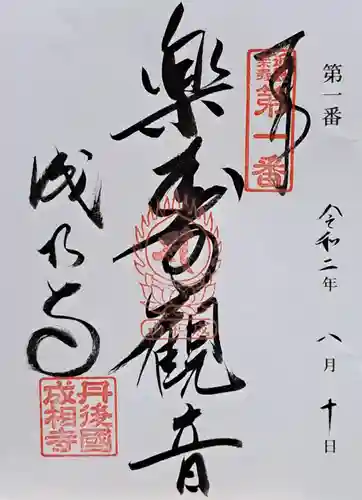 第一番
令和二年 八月十日
奉
第一番
楽寿観音
成相寺
丹後國
成相寺